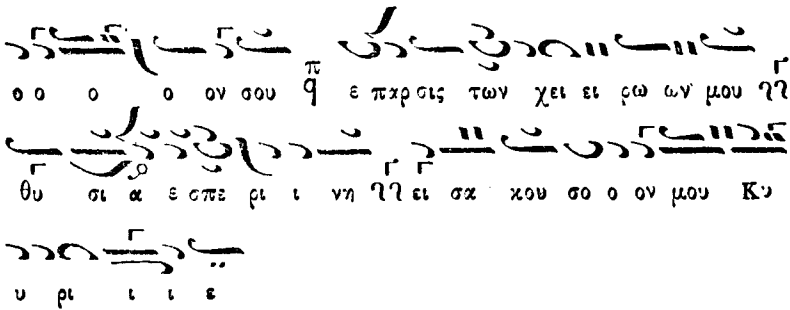 ο ο ο ο ον σου π̈ q ε παρσις των χει ει ρω ων μου
θυ σι α ε σπε ρι ι νη ει σα κου σο ο ον μου Κυ
υ ρι ι ι ε